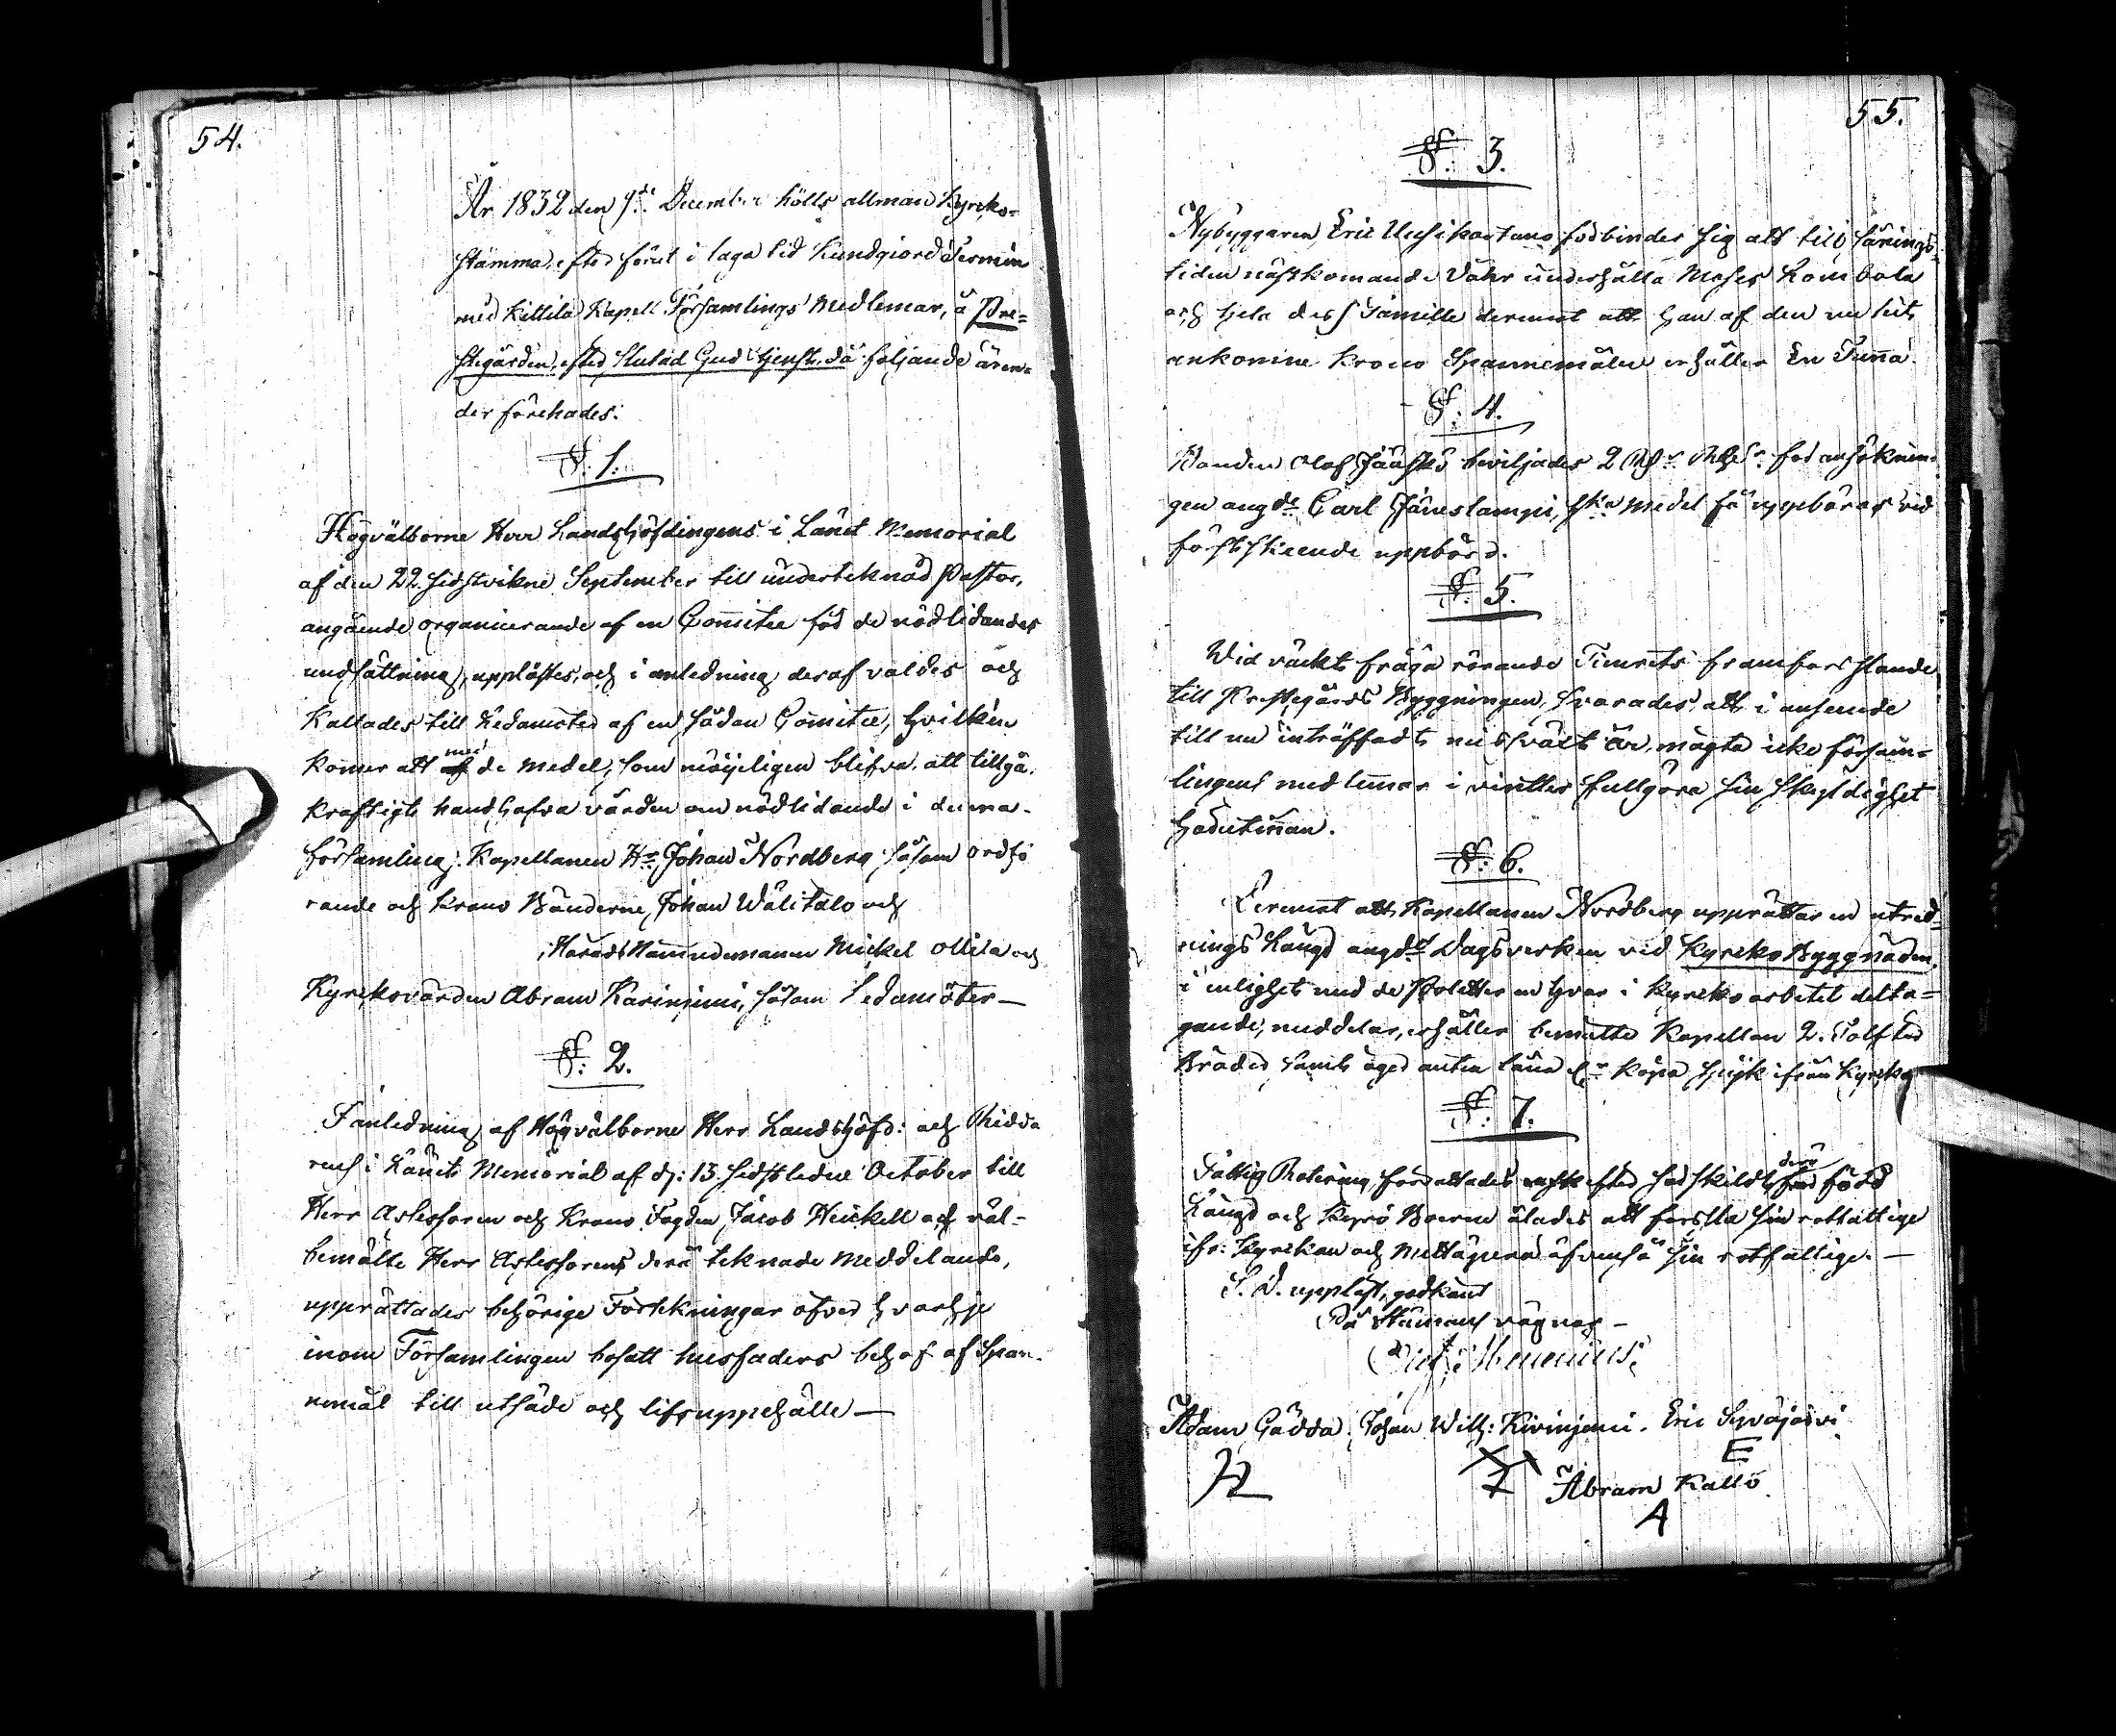 54.
År 1832 den 9de December hölls allman Kyrko-
stämma, efter förut i laga tid kundgiord Termin
med Kittilä Kapell Församlings Medlemar, å Pre-
stegården, efter slutad Gudstjenst, då följande ären-
der förehades:
§. 1.
Högvälborne Herr Landshöfdingens i Länet Memorial
af den 22 sidstvikne September till underteknad Pastor,
angående organicerande af en Committee för de nödlidandes
undsättning, upplästes, och i anledning deraf valdes och
kallades till Ledamöter af en sådan Comitee, hvilken
kommer att af med de medel, som möyeligen blifva att tillgå,
kraftigt handhafva vården om nödlidande i denna
församling: Kapellanen Hr Johan Nordberg såsom ordfö
rande och Krono Bönderne, Johan Wälitalo och
Härads Nämndemannen Mickel Ollila och
Kyrkovärden Abram Karinjemi, såsom Ledamöter —
§. 2.
I anledning af Högvälborne Herr Landshöfd: och Ridda
rens i Länets Memorial af d: 13 sidstledne October till
Herr Assessoren och Krono Fogden Jacob Heickell och väl-
bemälte Herr Assessorens derå teknade Meddelande,
upprättades behörige Förtekningar öfver hvarhje
inom Församlingen bosatt husfaders behof af Span-
nemål till utsäde och lifsuppehälle —
55.
§. 3.
Nybyggaren Eric Uusikartano förbinder sig att till sånings
tiden nästkomande Våhr underhålla Moses Kombola
och hela dess Familie deremot att han af den nu sist
ankomne Krono Spannemålen erhåller En Tunna.
§. 4.
Bonden Olof Jääskö beviljades 2 Rd r Rgs r för ansöknin-
gen angde Carl Jäneslampi, ska medel få uppbäras vid
förstskeende uppbörd.
§. 5.
Wid väckt fråga rörande Timrets framforslande
till Prestegårds Byggningen, svarades, att i anseende
till nu inträffadt missväxt år, mägta icke försam-
lingens medlemmar i vinter fullgöra sin skyldighet
hädutinnan.
§. 6.
Deremot att Kapellanen Nordberg upprättar en utred-
nings Längd angde Dagsverken vid Kyrko Byggnaden
i enlighet med de Poletter en hvar i Kyrko arbetet delta-
gande, meddelar, erhåller bemälte Kapellan 2 Tolfter
Bräder, samt äger antin låna el r köpa spijk ifrån Kyrkan
§. 7.
Fattig Rotering författades efter särskildt derå förd
Längd och Kyrö Boerne ålades att forsla sin rotfattige
ifr: Kyrckan och Muttägena äfvenså sin rotfattige. —
S. D. uppläst, godkänt
På Stämans vägnar —
Adam Gädda. Johan Wilh: Kivinjemi. Eric Syväjärvi
E
Abram Kallo
A